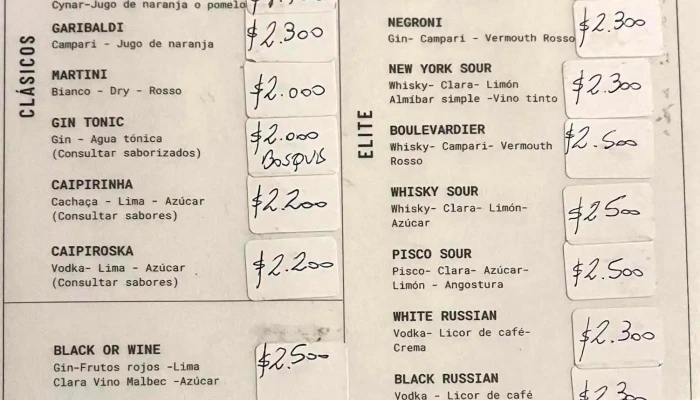 Cynar-Jugo de naranja o pomelo
CLÁSICOS
GARIBALDI
Campari - Jugo de naranja
$2.300
MARTINI
Bianco - Dry - Rosso
$2.000
GIN TONIC
Gin - Agua tónica
(Consultar saborizados)
$2.000
BOSQUIS
CAIPIRINHA
Cachaça - Lima - Azúcar
(Consultar sabores)
$2.200
CAIPIROSKA
Vodka- Lima - Azúcar
(Consultar sabores)
$2.200
BLACK OR WINE
Gin-Frutos rojos -Lima
Clara Vino Malbec -Azúcar
$2.500
ELITE
NEGRONI
Gin- Campari - Vermouth Rosso
$2.300
NEW YORK SOUR
Whisky- Clara- Limón
Almíbar simple -Vino tinto
$2.300
BOULEVARDIER
Whisky- Campari- Vermouth
Rosso
$2.500
WHISKY SOUR
Whisky- Clara- Limón-
Azúcar
$2500
PISCO SOUR
Pisco- Clara- Azúcar-
Limón - Angostura
$2.500
WHITE RUSSIAN
Vodka- Licor de café-
Crema
$2.300
BLACK RUSSIAN
Vodka - Licor de café
$2.300